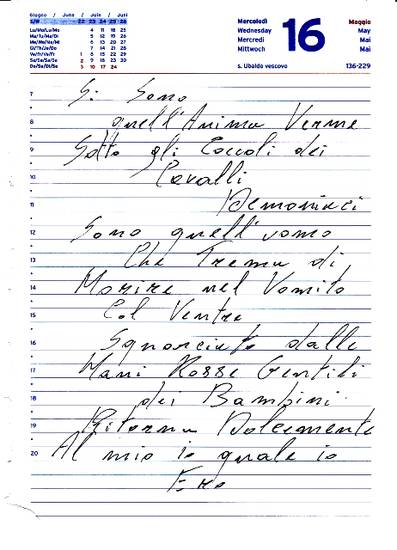 Giugno / June / Juin / Juni
S/W 22 23 24 25 26
Lu/Mo/Lu/Mo 4 11 18 25
Ma/Tu/Ma/Di 5 12 19 26
Me/We/Me/Mi 6 13 20 27
Gi/Th/Je/Do 7 14 21 28
Ve/Fr/Ve/Fr 1 8 15 22 29
Sa/Sa/Sa/Sa 2 9 16 23 30
Do/Su/Di/So 3 10 17 24
Mercoledì
Wednesday
Mercredi
Mittwoch
16
Maggio
May
Mai
Mai
s. Ubaldo vescovo 136-229
7 Si Sono
8 quell'Anima Verme
9 Sotto gli dei
10 Cavalli
11 Demoniaci
12 Sono quell'uomo
13 Che Trema di
14 Morire nel Vomito
15 Col Ventre
16 Squarciato dalle
17 Mani Rosse Gentili
18 dei Bambini
19 Ritorna Dolcemente
20 Al mio io quale io
Ero